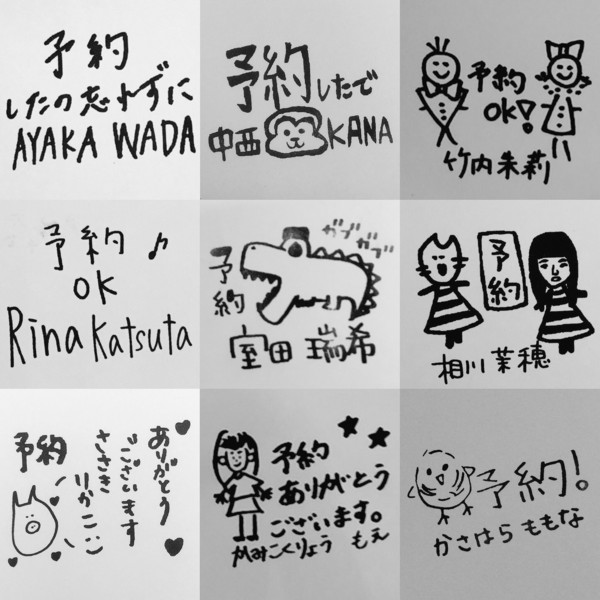 予約
したの忘れずに
AYAKA WADA
予約したで
中西 KANA
予約
OK!
竹内朱莉
予約♪
OK
Rina Katsuta
ガブガブ
予約
室田 瑞希
予約
相川茉穂
予約
ありがとう
ございます
ささき
りかこ
予約
ありがとう
ございます。
かみこくりょう もえ
予約!
かさはら ももな